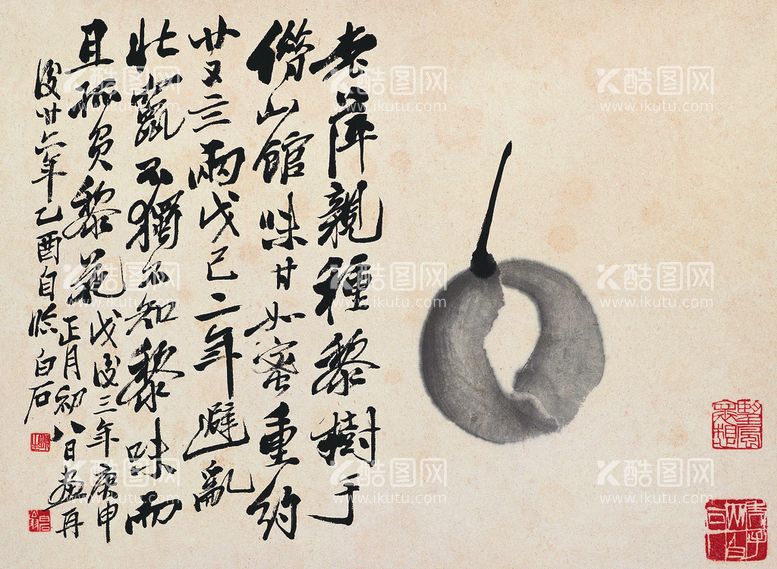 老萍親種黎樹于
借山館味甘如蜜重約
廿又三兩戊己二年避亂
北竄不獨不知黎味而
且孤負黎花戊後三年庚申
正月初八日畫再
後廿六年乙酉自臨白石
酷图网
www.ikutu.com
酷图网
www.ikutu.com
酷图网
www.ikutu.com
酷图网
www.ikutu.com
酷图网
www.ikutu.com
酷图网
www.ikutu.com
酷图网
www.ikutu.com
酷图网
www.ikutu.com
酷图网
www.ikutu.com